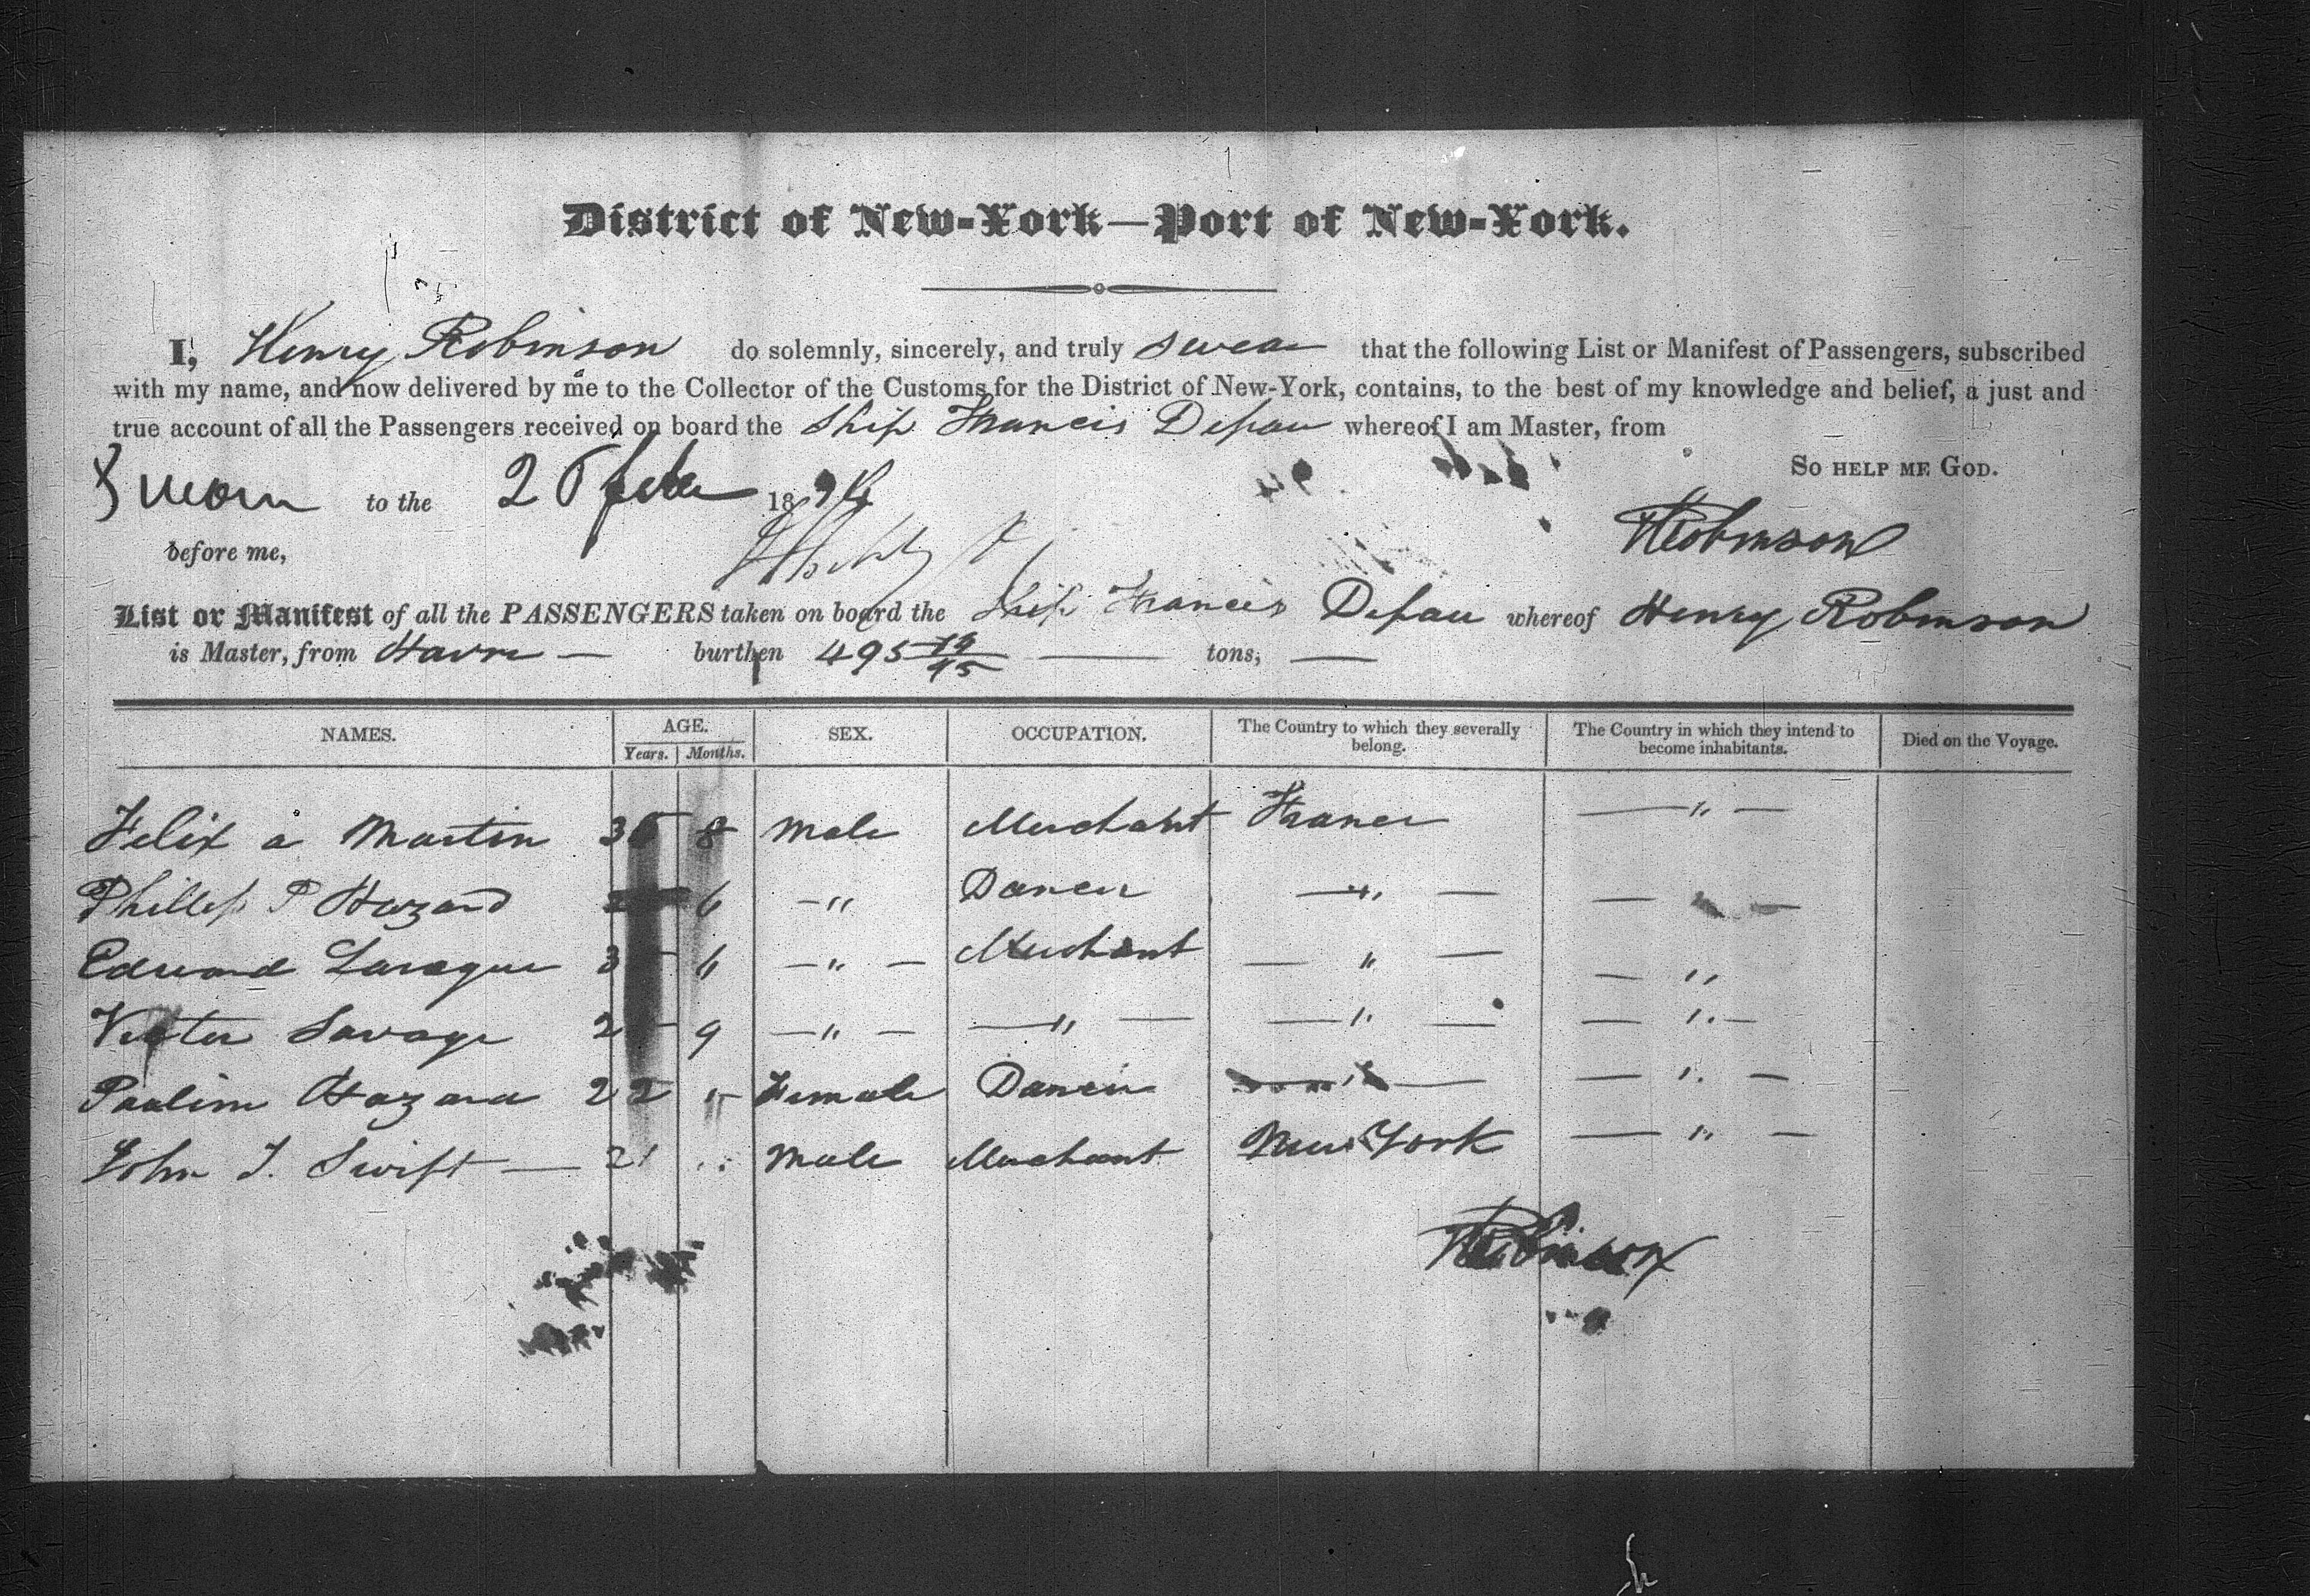 District of New-York—Port of New-York.
I, Henry Robinson do solemnly, sincerely, and truly swear that the following List or Manifest of Passengers, subscribed
with my name, and now delivered by me to the Collector of the Customs for the District of New-York, contains, to the best of my knowledge and belief, a just and
true account of all the Passengers received on board the Ship Francis Depau whereof I am Master, from
So help me God.
Sworn to the 18
HRobinson
before me,
List or Manifest of all the PASSENGERS taken on board the Ship Francis Depau whereof Henry Robinson
is Master, from Havre — burthen 495 tons, —
NAMES. AGE. SEX. OCCUPATION. The Country to which they severally belong. The Country in which they intend to become inhabitants. Died on the Voyage.
Years. Months.
Felix a Martin 8 Male Merchant France — " —
Phillip P Hazard 6 — " Dancer — " — —
Edward Laraque 6 — " — Merchant — " — — "
Victor Savage 9 — " — — " — — " — — " —
Paulin Hazard 22 " Female Dancer — " — — " —
John T. Swift — 21 " Male Merchant New York — " —
HRobinson